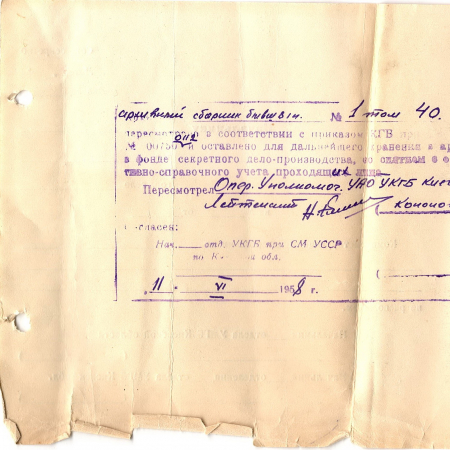 архивный сборник бывш в/ч. № 1 том 40.
пересмотрен в соответствии с приказом КГБ пр
№ 00750 и оставлено для дальнейшего хранения в ар
в фонде секретного дело-производства, со снятием с о
тивно-справочного учета проходящих лица
Пересмотрел Опер. Уполномоч. УАО УКГБ Кие
Лейтенант Коноло
Согласен:
Нач. отд. УКГБ при СМ УССР
по К обл.
"11" VI 1958 г.